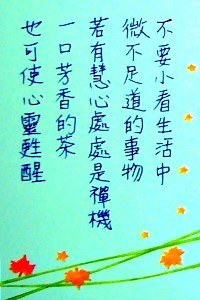 不要小看生活中
微不足道的事物
若有慧心處處是禪機
一口芳香的茶
也可使心靈甦醒